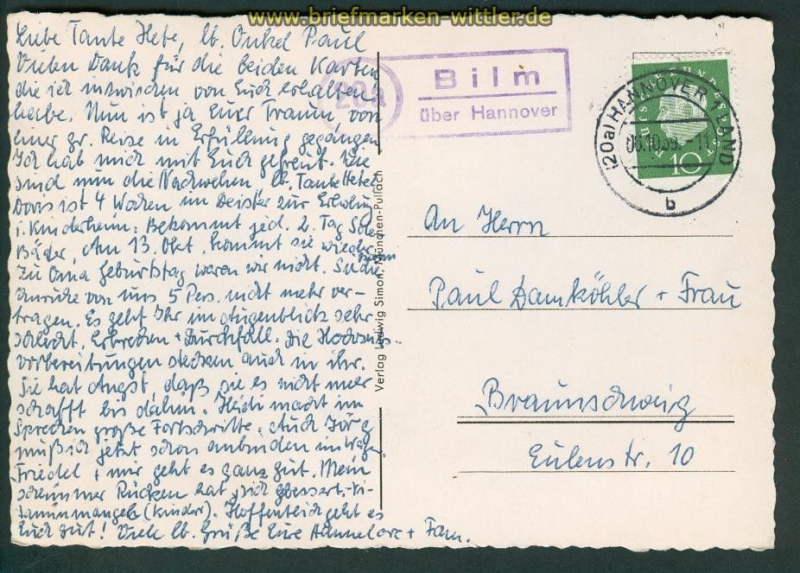 www.briefmarken-wittler.de
Liebe Tante Hete, lb. Onkel Paul
Vielen Dank für die beiden Karten
die ich inzwischen von Euch erhalten
habe. Nun ist ja Euer Traum von
einer gr. Reise in Erfüllung gegangen
Ich hab mich mit Euch gefreut. Wie
sind nun die Nachwehen lb. Tante Hete?
Doris ist 4 Wochen im Deister zur Erholung
i. Kinderheim. Bekommt jed. 2. Tag Sole
Bäder, Am 13. Okt. kommt sie wieder
Zu Oma Geburtstag waren wir nicht. Sie
von uns 5 Pers. nicht mehr ver-
tragen. Es geht Ihr im Augenblick sehr
schlecht. Erbrechen + Durchfall. Die Hochzeits-
vorbereitungen stecken auch in ihr.
Sie hat Angst, daß sie es nicht mehr
schafft bis dahin. Heidi macht im
Sprechen große Fortschritte. Auch Jörg
muß ich jetzt schon anbinden im Wagen
Friedel + mir geht es ganz gut. Mein
schlimmer Rücken hat sich gebessert. Vi-
taminmangel (Kinder). Hoffentlich geht es
Euch gut! Viele lb. Grüße Eure Hannelore + Fam.
Verlag Ludwig Simon, München-Pullach
20a
Bilm
über Hannover
(20a) HANNOVER 1 LAND
06.10.59.-11
b
10
An Herrn
Paul Damköhler + Frau
Braunschweig
Eulenstr. 10